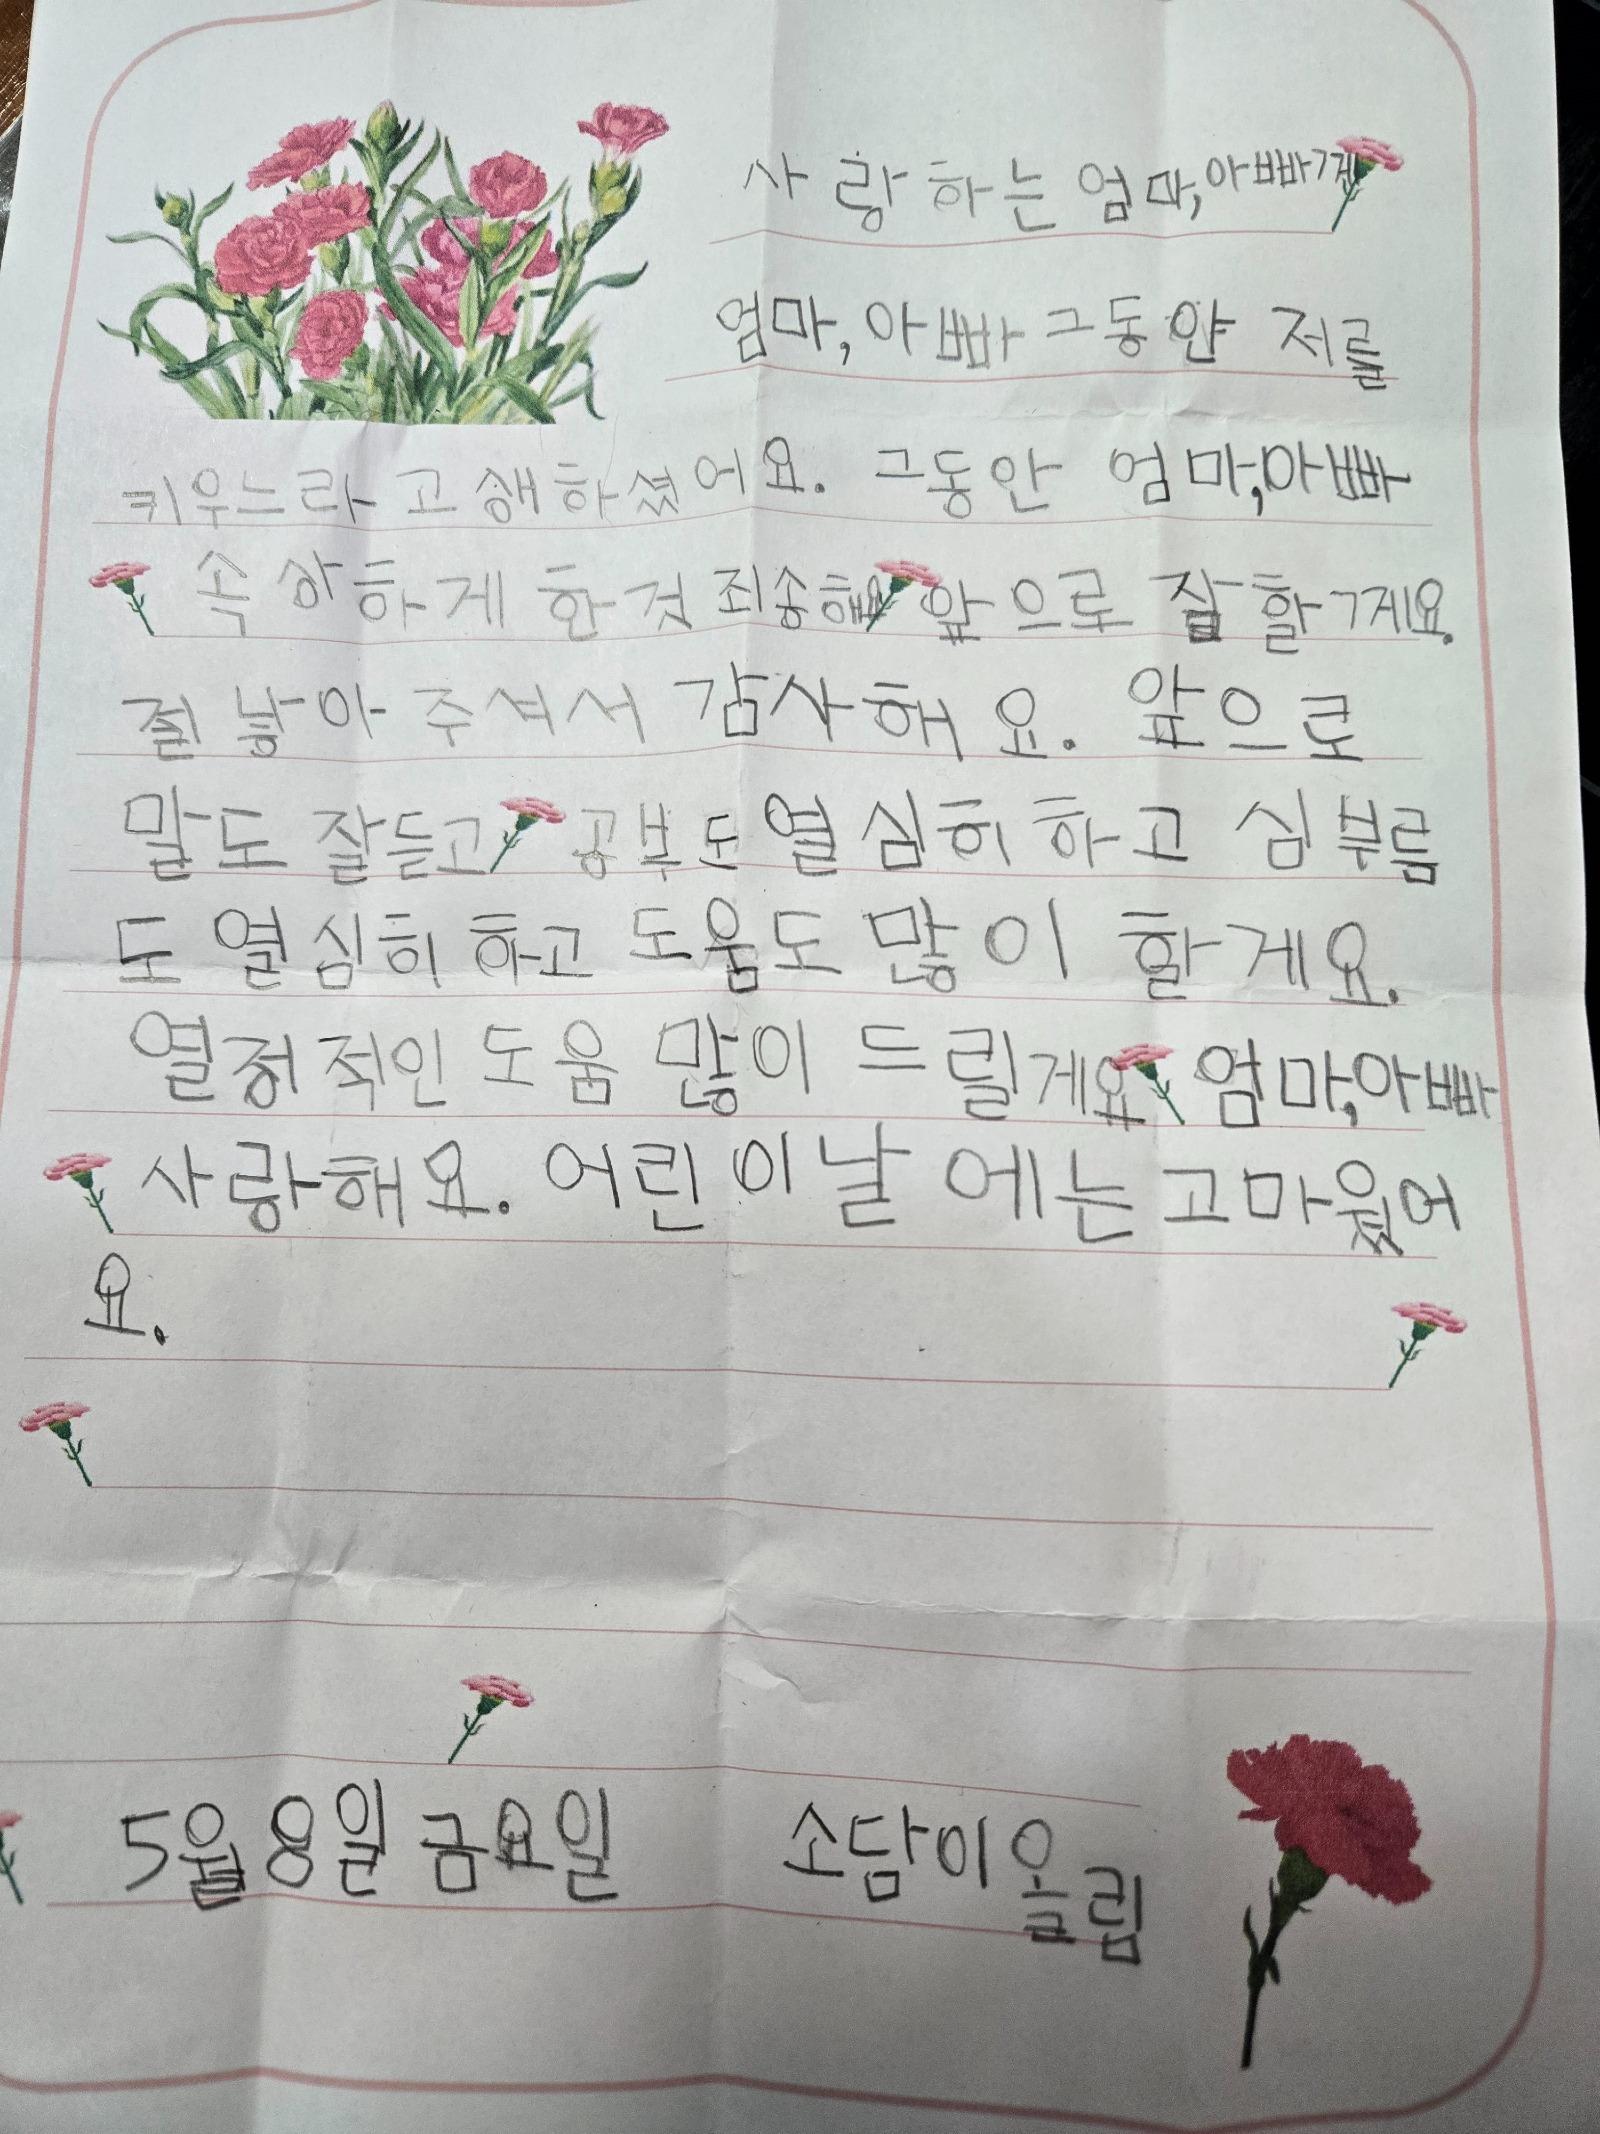 사랑하는 엄마,아빠께
엄마,아빠 그동안 저를
키우느라 고생하셨어요. 그동안 엄마,아빠
속상하게 한것 죄송해요 앞으로 잘 할게요.
절 낳아 주셔서 감사해요. 앞으로
말도 잘듣고 공부도 열심히 하고 심부름
도 열심히 하고 도움도 많이 할게요.
열정적인 도움 많이 드릴게요 엄마,아빠
사랑해요. 어린이날에는 고마웠어
요.
5월8일 금요일 소담이올림